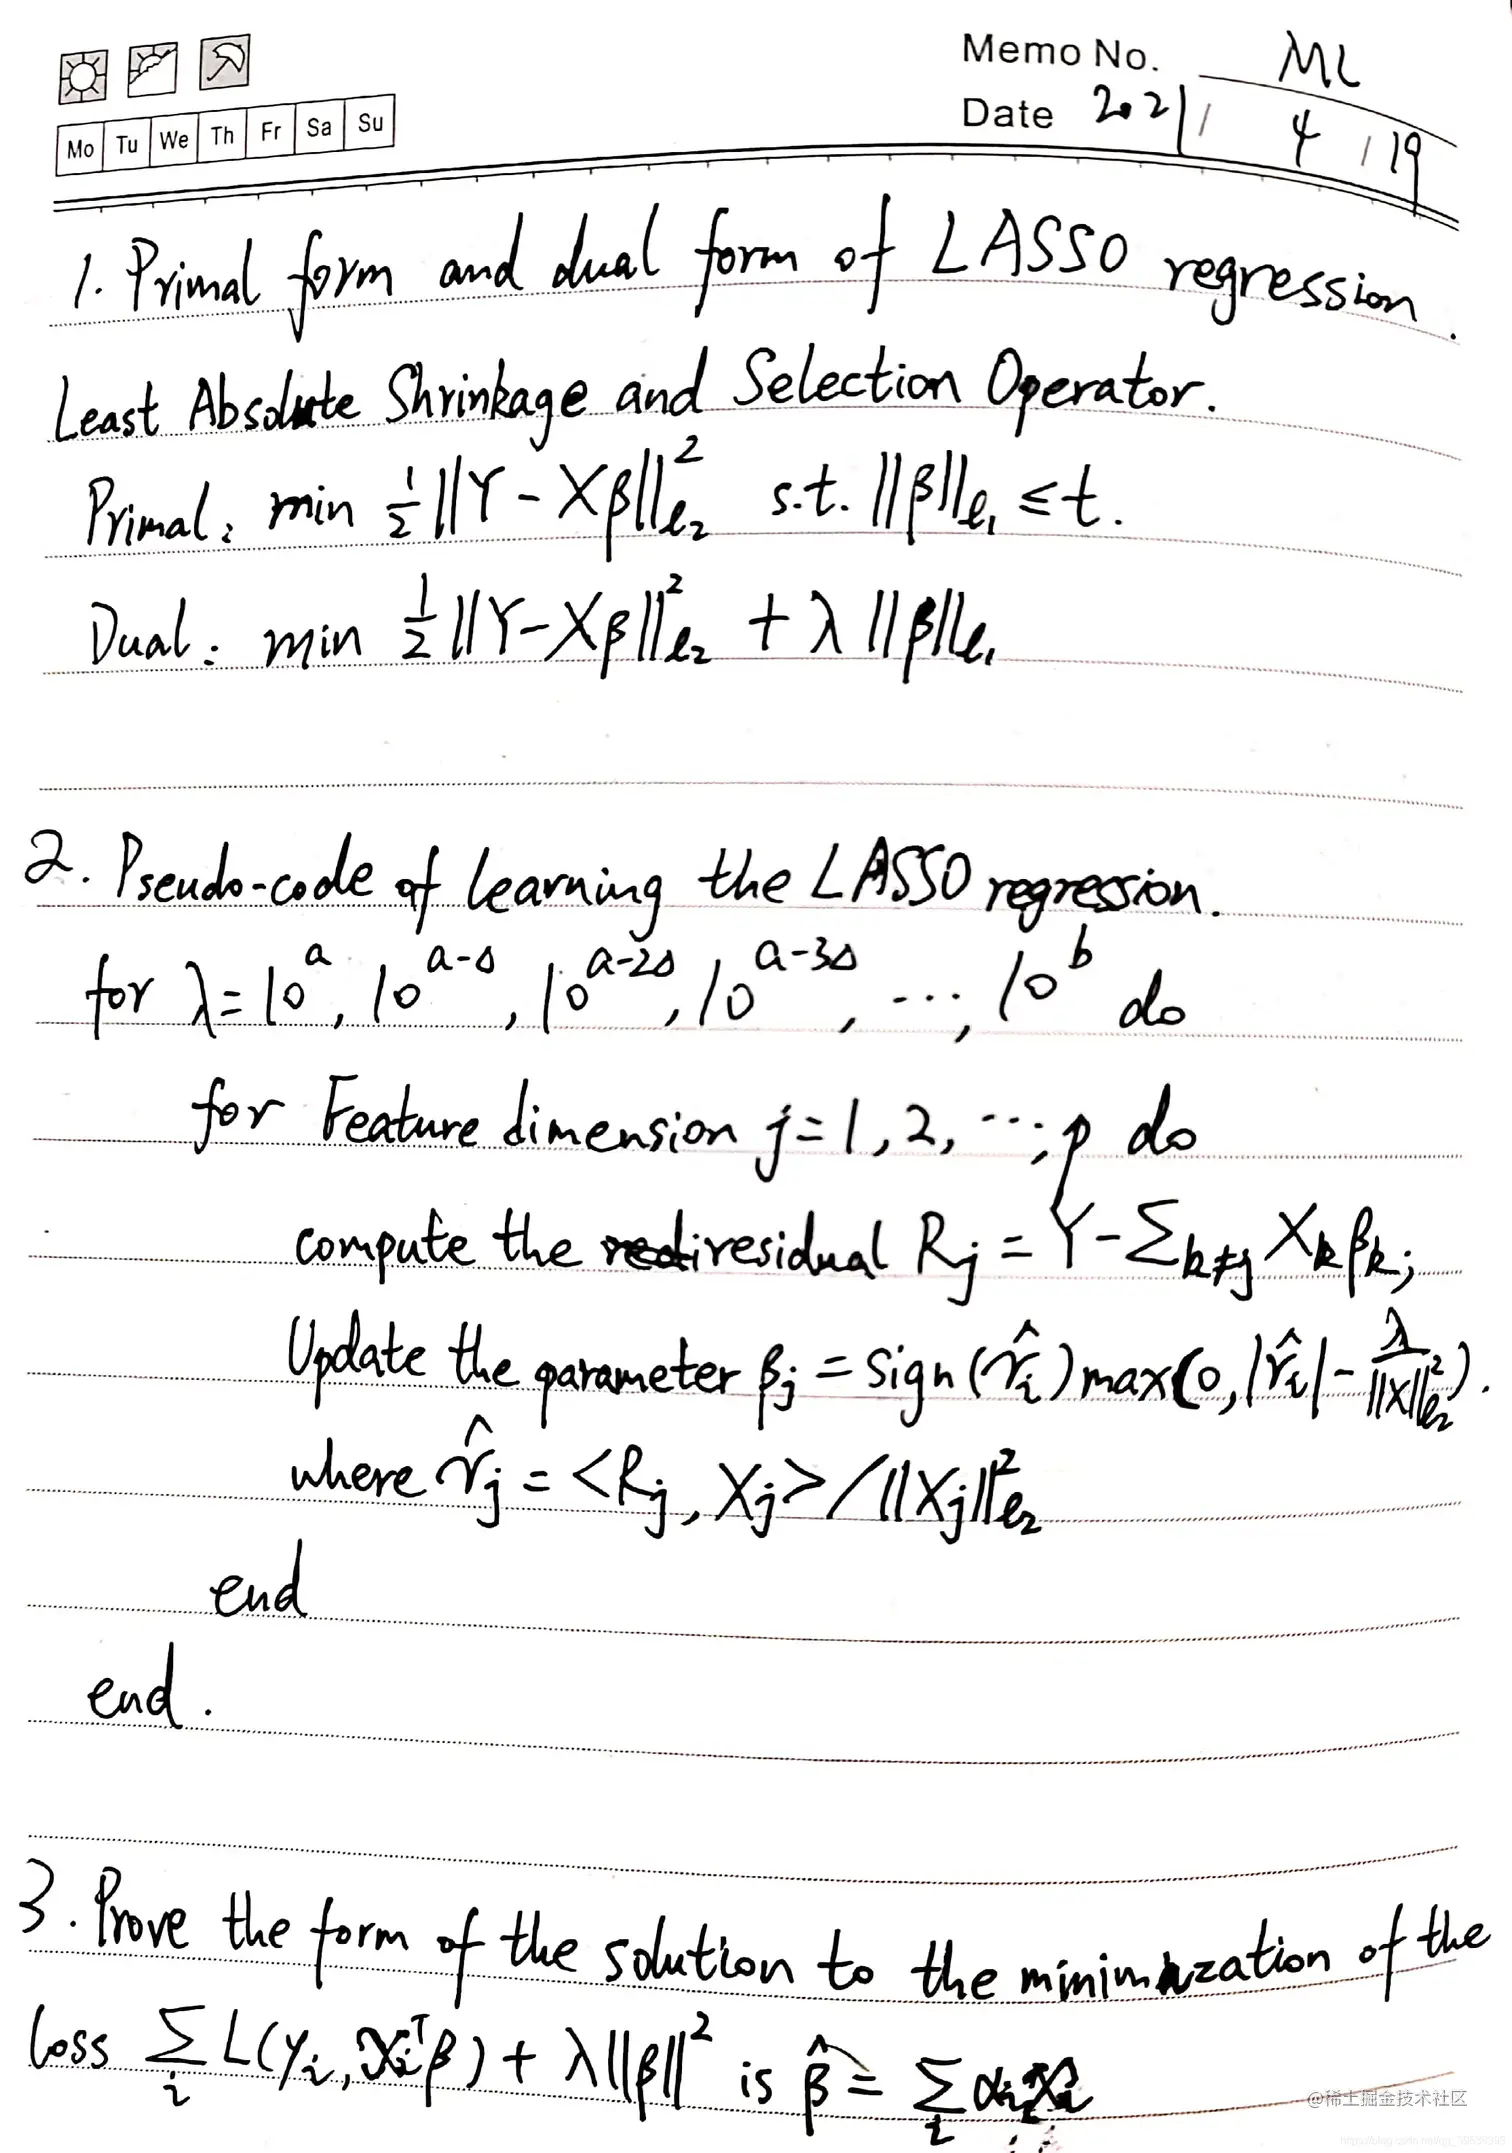 Memo No. ML
Mo Tu We Th Fr Sa Su
Date 2021 / 4 / 19
1. Primal form and dual form of LASSO regression.
Least Absolute Shrinkage and Selection Operator.
Primal: min ½||Y - Xβ||²_ℓ₂ s.t. ||β||_ℓ₁ ≤ t.
Dual: min ½||Y - Xβ||²_ℓ₂ + λ ||β||_ℓ₁
2. Pseudo-code of learning the LASSO regression.
for λ = 10^a, 10^(a-Δ), 10^(a-2Δ), 10^(a-3Δ), ..., 10^b do
for Feature dimension j = 1, 2, ..., p do
compute the residual R_j = Y - Σ_(k≠j) X_k β_k;
Update the parameter β_j = Sign(r̂_i) max(0, |r̂_i| - λ/||X||²_ℓ₂).
where r̂_j = <R_j, X_j> / ||X_j||²_ℓ₂
end
end.
3. Prove the form of the solution to the minimization of the
loss Σ_i L(y_i, x_i^T β) + λ||β||² is β̂ = Σ_i α_i x_i
@稀土掘金技术社区